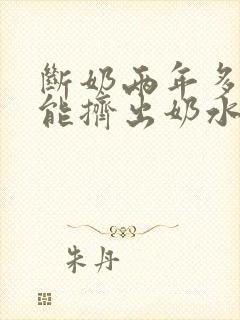 斷奶兩年多
能擠出奶水
朱丹